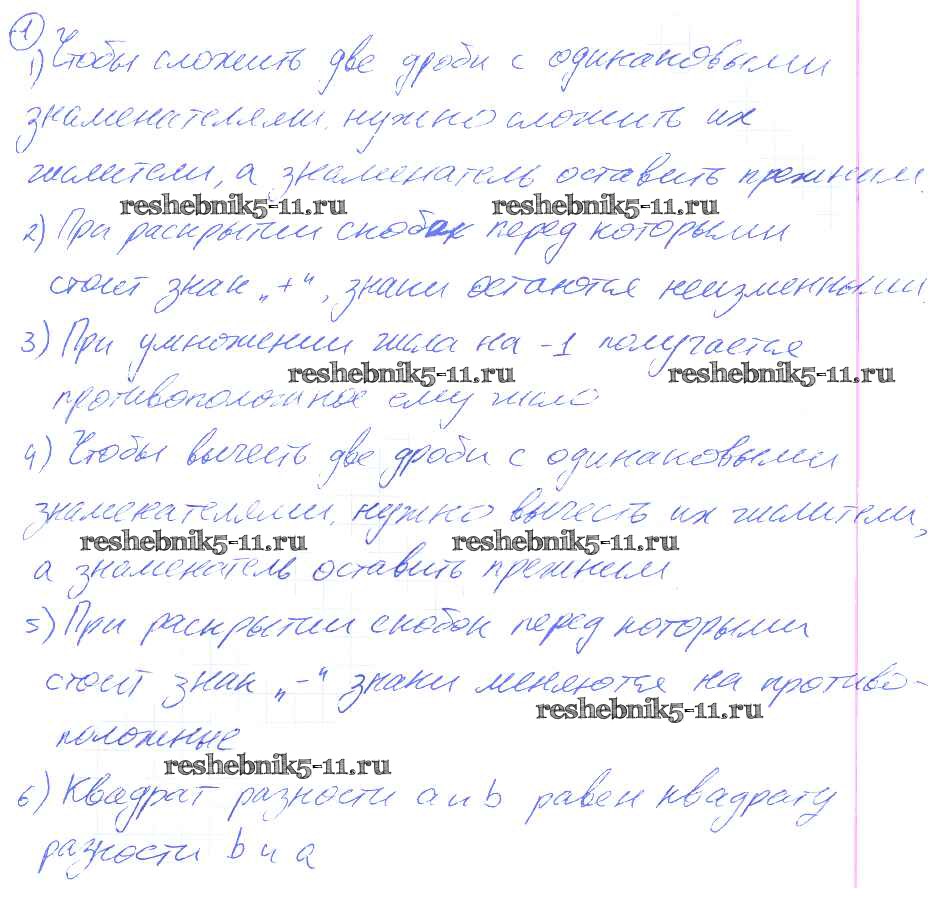 1
1) Чтобы сложить две дроби с одинаковыми
знаменателями, нужно сложить их
числители, а знаменатель оставить прежним.
reshebnik5-11.ru reshebnik5-11.ru
2) При раскрытии скобок перед которыми
стоит знак „+“, знаки остаются неизменными.
3) При умножении числа на -1 получается
reshebnik5-11.ru reshebnik5-11.ru
противоположное ему число
4) Чтобы вычесть две дроби с одинаковыми
знаменателями, нужно вычесть их числители,
reshebnik5-11.ru reshebnik5-11.ru
а знаменатель оставить прежним
5) При раскрытии скобок перед которыми
стоит знак „-“ знаки меняются на противо-
reshebnik5-11.ru
положные
reshebnik5-11.ru
6) Квадрат разности a и b равен квадрату
разности b и a